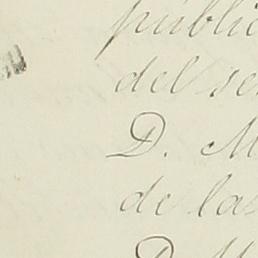 públic
del se
D. M
de las
D. M